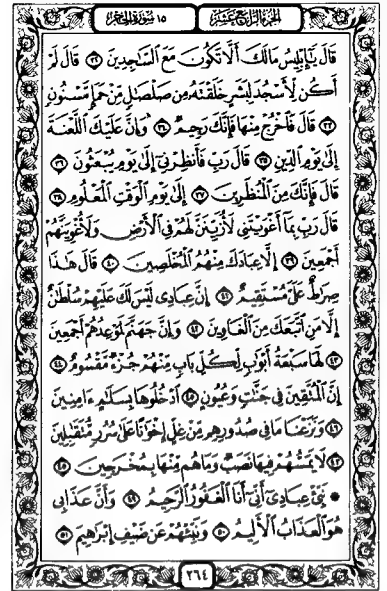 سورة الحجر ١٥ الجزء الرابع عشر
قَالَ يَٰٓإِبۡلِيسُ مَالَكَ أَلَّا تَكُونَ مَعَ ٱلسَّٰجِدِينَ ٣٢ قَالَ لَمۡ
أَكُن لِّأَسۡجُدَ لِبَشَرٍ خَلَقۡتَهُۥ مِن صَلۡصَٰلٍ مِّنۡ حَمَإٍ مَّسۡنُونٍ
٣٣ قَالَ فَٱخۡرُجۡ مِنۡهَا فَإِنَّكَ رَجِيمٌ ٣٤ وَإِنَّ عَلَيۡكَ ٱللَّعۡنَةَ
إِلَىٰ يَوۡمِ ٱلدِّينِ ٣٥ قَالَ رَبِّ فَأَنظِرۡنِيٓ إِلَىٰ يَوۡمِ يُبۡعَثُونَ ٣٦
قَالَ فَإِنَّكَ مِنَ ٱلۡمُنظَرِينَ ٣٧ إِلَىٰ يَوۡمِ ٱلۡوَقۡتِ ٱلۡمَعۡلُومِ ٣٨
قَالَ رَبِّ بِمَآ أَغۡوَيۡتَنِي لَأُزَيِّنَنَّ لَهُمۡ فِي ٱلۡأَرۡضِ وَلَأُغۡوِيَنَّهُمۡ
أَجۡمَعِينَ ٣٩ إِلَّا عِبَادَكَ مِنۡهُمُ ٱلۡمُخۡلَصِينَ ٤٠ قَالَ هَٰذَا
صِرَٰطٌ عَلَيَّ مُسۡتَقِيمٌ ٤١ إِنَّ عِبَادِي لَيۡسَ لَكَ عَلَيۡهِمۡ سُلۡطَٰنٌ
إِلَّا مَنِ ٱتَّبَعَكَ مِنَ ٱلۡغَاوِينَ ٤٢ وَإِنَّ جَهَنَّمَ لَمَوۡعِدُهُمۡ أَجۡمَعِينَ
٤٣ لَهَا سَبۡعَةُ أَبۡوَٰبٍ لِّكُلِّ بَابٍ مِّنۡهُمۡ جُزۡءٌ مَّقۡسُومٌ ٤٤
إِنَّ ٱلۡمُتَّقِينَ فِي جَنَّٰتٍ وَعُيُونٍ ٤٥ ٱدۡخُلُوهَا بِسَلَٰمٍ ءَامِنِينَ
٤٦ وَنَزَعۡنَا مَا فِي صُدُورِهِم مِّنۡ غِلٍّ إِخۡوَٰنًا عَلَىٰ سُرُرٍ مُّتَقَٰبِلِينَ
٤٧ لَا يَمَسُّهُمۡ فِيهَا نَصَبٌ وَمَا هُم مِّنۡهَا بِمُخۡرَجِينَ ٤٨
۞ نَبِّئۡ عِبَادِيٓ أَنِّيٓ أَنَا ٱلۡغَفُورُ ٱلرَّحِيمُ ٤٩ وَأَنَّ عَذَابِي
هُوَ ٱلۡعَذَابُ ٱلۡأَلِيمُ ٥٠ وَنَبِّئۡهُمۡ عَن ضَيۡفِ إِبۡرَٰهِيمَ ٥١
٢٦٤